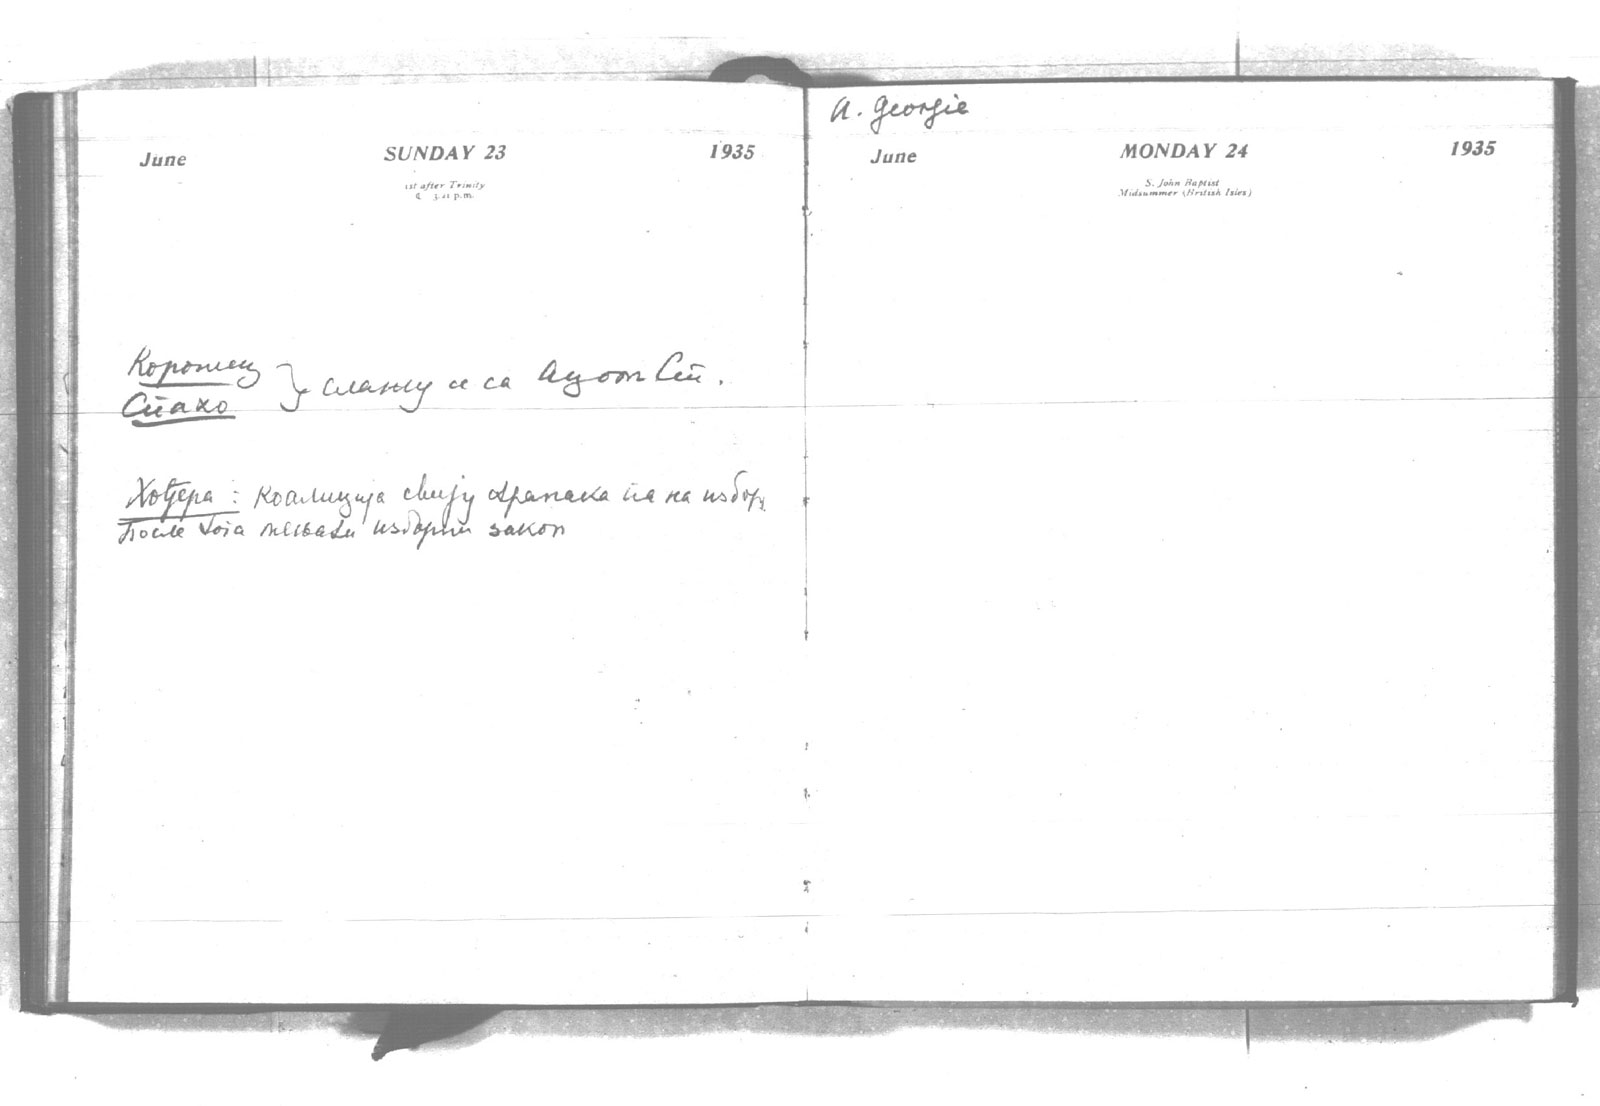 June SUNDAY 23 1935
1st after Trinity
☾ 3.21 p.m.
Корошец
Спахо } слажу се са Ацом Ст.
Хођера: коалиција свију странака па на избор.
После тога мењати изборни закон
A. Georgie
June MONDAY 24 1935
S. John Baptist
Midsummer (British Isles)